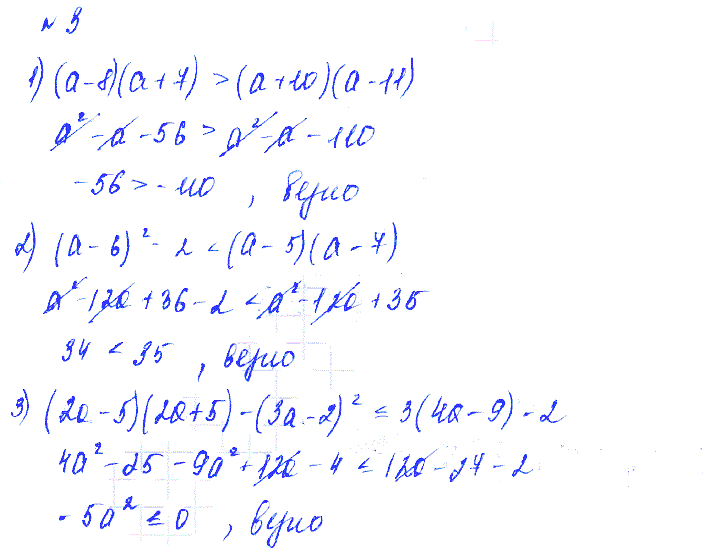 № 9
1) (a-8)(a+7) > (a+10)(a-11)
a² - a - 56 > a² - a - 110
-56 > -110 , верно
2) (a-6)² - 2 < (a-5)(a-7)
a² - 12a + 36 - 2 < a² - 12a + 35
34 < 35 , верно
3) (2a-5)(2a+5) - (3a-2)² ≤ 3(4a-9) - 2
4a² - 25 - 9a² + 12a - 4 ≤ 12a - 27 - 2
-5a² ≤ 0 , верно